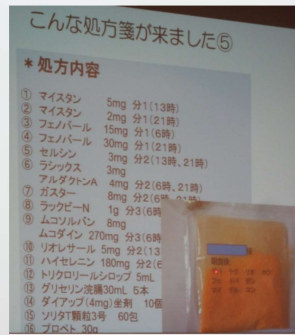 こんな処方箋が来ました⑤
＊処方内容
① マイスタン 5mg 分1(13時)
② マイスタン 2mg 分1(21時)
③ フェノバール 15mg 分1(6時)
④ フェノバール 30mg 分1(21時)
⑤ セルシン 3mg 分2(13時、21時)
⑥ ラシックス 3mg
アルダクトンA 4mg 分2(6時、21時)
⑦ ガスター 8mg 分2(6時
⑧ ラックビーN 1g 分3(6時
⑨ ムコソルバン 8mg
ムコダイン 270mg 分3(6時
⑩ リオレサール 5mg 分2(13
⑪ ハイセレニン 180mg 分2(6
⑫ トリクロリールシロップ 5mL
⑬ グリセリン浣腸30mL 5本
⑭ ダイアップ(4mg)坐剤 10個
⑮ ソリタT顆粒3号 60包
⑯ プロペト 30g